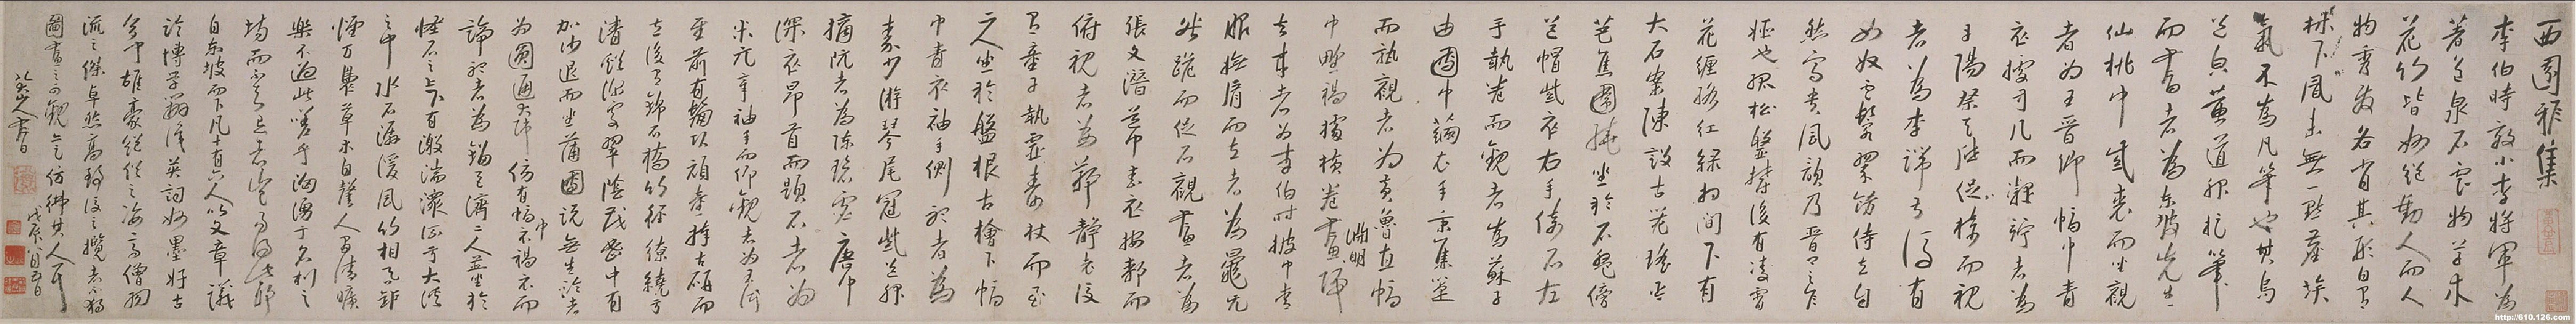 西園雅集
李伯時效小李將軍為
著色泉石雲物草木
花竹皆妙絕動人而人
物秀發各肖其形自有
林下風味無一點塵埃
氣不為凡筆也其烏
道服捉筆
而書者為東坡先生
仙桃巾紫裘而坐觀
者為王晉卿幅巾青
衣據方几而凝竚者為
丹陽蔡天啓捉椅而視
者為李端叔後有
女奴雲鬟翠飾侍立自
然富貴風韻乃晉卿之家
姬也孤松盤鬱後有凌霄
花纏絡紅綠相間下有
大石案陳設古器瑤琴
芭蕉圍繞坐於石盤傍
道帽紫衣右手倚石左
手執卷而觀者為蘇子
由團巾繭衣手秉蕉箑
而熟視者為黃魯直幅
巾野褐據橫卷畫淵明歸
去來者為李伯時披巾青
服撫肩而立者為晁无
咎跪而捉石觀畫者為
張文潛道巾素衣按膝而
俯視者為鄭靜老後
有童子執靈壽杖而立
二人坐於盤根古檜下幅
巾青衣袖手側聽者為
秦少游琴尾冠紫道服
摘阮者為陳碧虛唐巾
深衣昂首而題石者為
米元章袖手而仰觀者為王仲
至前有鬅頭頑童捧古硯而
立後有錦石橋竹徑繚繞於
清谿深處翠陰茂密中有
袈裟坐蒲團說無生論者
為圓通大師傍有幅巾褐衣而
諦聽者為劉巨濟二人並坐於
怪石之上下有激湍潨流於大溪
之中水石潺湲風竹相吞爐
煙方裊草木自馨人間清曠
樂不過此嗟乎洶湧于名利之
場而不知退者豈易得此耶
自東坡而下凡十有六人以文章議
論博學辨識英詞妙墨好古
多聞雄豪絕俗之資高僧羽
流之傑卓然高致後之攬者不獨
圖畫之可觀亦足仿彿其人耳
八大山人書
http://610.126.com